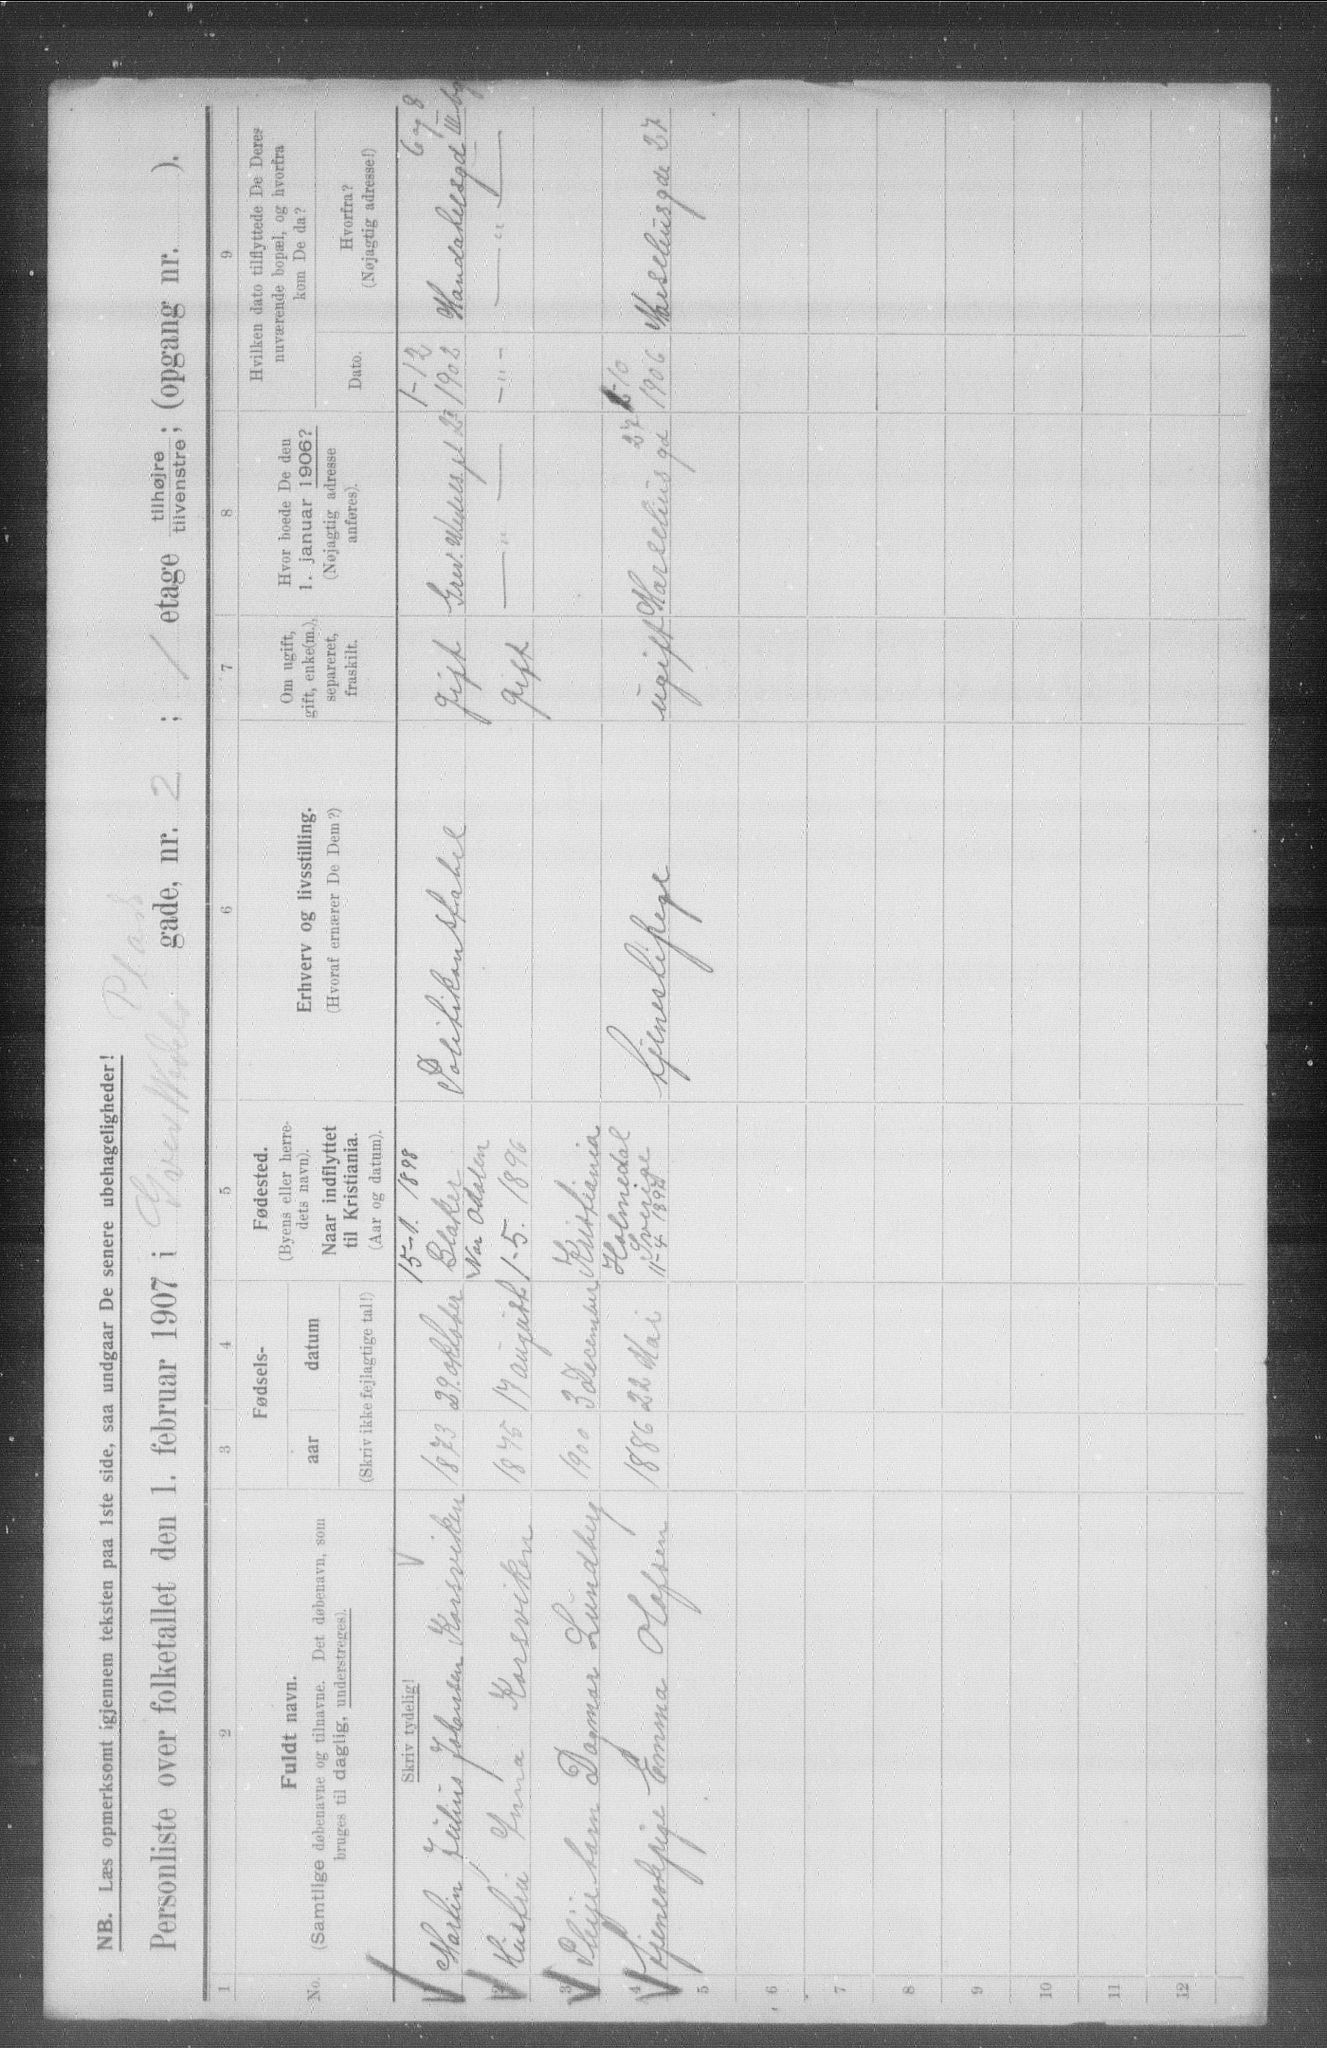 NB. Læs opmerksomt igjennem teksten paa 1ste side, saa undgaar De senere ubehageligheder!
Personliste over folketallet den 1. februar 1907 i Grev Wedels Plads gade, nr. 2 ; 1 etage tilhøjre tilvenstre; (opgang nr. ).
1 2 3 4 5 6 7 8 9
No.
Fuldt navn.
(Samtlige døbenavne og tilnavne. Det døbenavn, som
bruges til daglig, understreges).
Fødsels-
aar datum
(Skriv ikke fejlagtige tal!)
Fødested.
(Byens eller herre-
dets navn).
Naar indflyttet
til Kristiania.
(Aar og datum).
Erhverv og livsstilling.
(Hvoraf ernærer De Dem?)
Om ugift,
gift, enke(m.),
separeret,
fraskilt.
Hvor boede De den
1. januar 1906?
(Nøjagtig adresse
anføres).
Hvilken dato tilflyttede De Deres
nuværende bopæl, og hvorfra
kom De da?
Dato.
Hvorfra?
(Nøjagtig adresse!)
Skriv tydelig!
15-1. 1898 1-12 678
Martin Julius Johansen Korsviken 1873 29. oktober Blaker Politikonstabel gift Grev. Wedels pl. 2 1902
Nor Odalen
2 Hustru Inna Korsviken 1875 17 august 1-5. 1896 gift — " — - " - — " —
3 Pleiebarn Dagmar Lundberg 1900 3 December Kristiania
Holmedal 27 1-10
4 Tjenestepige Emma Olofsen 1886 22 Mai Sverige tjenestepige ugift Marselius gd 1906 Marseliusgde 27
5
6
7
8
9
10
11
12